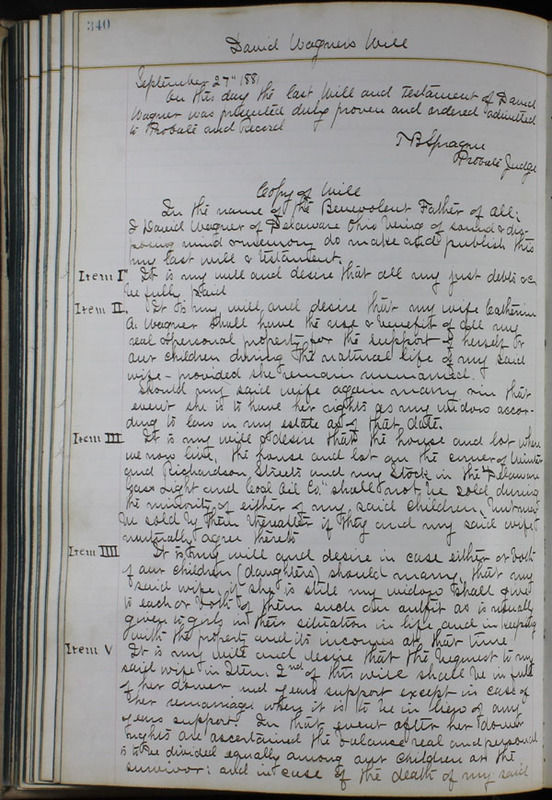 340
David Wagner's Will
September 27" 1881
On this day the last Will and testament of David
Wagner was presented duly proven and ordered admitted
to Probate and Record
T B Sprague
Probate Judge
Copy of Will
In the name of the Benevolent Father of all;
I David Wagner of Delaware Ohio being of sound & dis-
posing mind & memory do make and publish this
my last will & testament.
Item I" It is my will and desire that all my just debts
be fully paid
Item II. It is my will and desire that my wife Catherine
A. Wagner shall have the use & benefit of all my
real & personal property for the support of herself &
our children during the natural life of my said
wife - provided she remain unmarried.
Should my said wife again marry in that
event she is to have her rights as my widow accor-
ding to law in my estate as of that date.
Item III It is my will & desire that the house and lot where
we now live, the house and lot on the corner of Winter
and Richardson Streets and my Stock in the "Delaware
Gas Light and Coal Oil Co." shall not be sold during
the minority of either of my said children, but may
be sold by them thereafter if they and my said wife
mutually agree thereto
Item IIII It is my will and desire in case either or both
of our children (daughters) should marry, that my
said wife, if she is still my widow shall give
to each or both of them such an outfit as is usually
given to girls in their situation in life and in keeping
with the property and its incomes at that time
Item V It is my will and desire that the bequest to my
said wife in Item 2nd of this will shall be in full
of her dower and years support except in case of
her remarriage when it is to be in lieu of any
years support. In that event after her dower
rights are ascertained the balance real and personal
is to be divided equally among our children or the
survivor: and in case of the death of my said